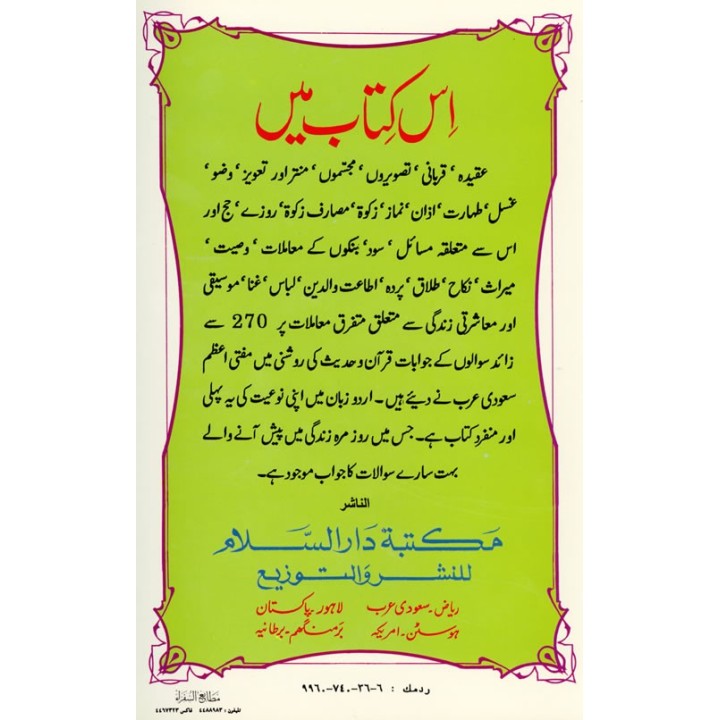 اِس کِتاب میں
عقیدہ ‘ قربانی ‘ تصویروں ‘ مجسّموں ‘ منتر اور تعویز ‘ وضو ‘
غسل ‘ طہارت ‘ اذان ‘ نماز ‘ زکوٰۃ ‘ مصارف زکوٰۃ ‘ روزے ‘ حج اور
اس سے متعلقہ مسائل ‘ سود ‘ بنکوں کے معاملات ‘ وصیت ‘
میراث ‘ نکاح ‘ طلاق ‘ پردہ ‘ اطاعت والدین ‘ لباس ‘ غنا ‘ موسیقی
اور معاشرتی زندگی سے متعلق متفرق معاملات پر 270 سے
زائد سوالوں کے جوابات قرآن و حدیث کی روشنی میں مفتی اعظم
سعودی عرب نے دیئے ہیں ۔ اردو زبان میں اپنی نوعیت کی یہ پہلی
اور منفرد کتاب ہے۔ جس میں روز مرہ زندگی میں پیش آنے والے
بہت سارے سوالات کا جواب موجود ہے۔
الناشر
مَكتبة دَارالسَّلام
للنشر وَالتوزيع
ریاض۔سعودی عرب لاہور۔پاکستان
ہوسٹن۔امریکہ برمنگھم۔برطانیہ
ردمك : ٦-٣٦-٧٤٠-٩٩٦٠
مطابع السفراء
تليفون : ٤٤٨٨٩٨٣ فاكس ٤٤٦٧٣٢٣